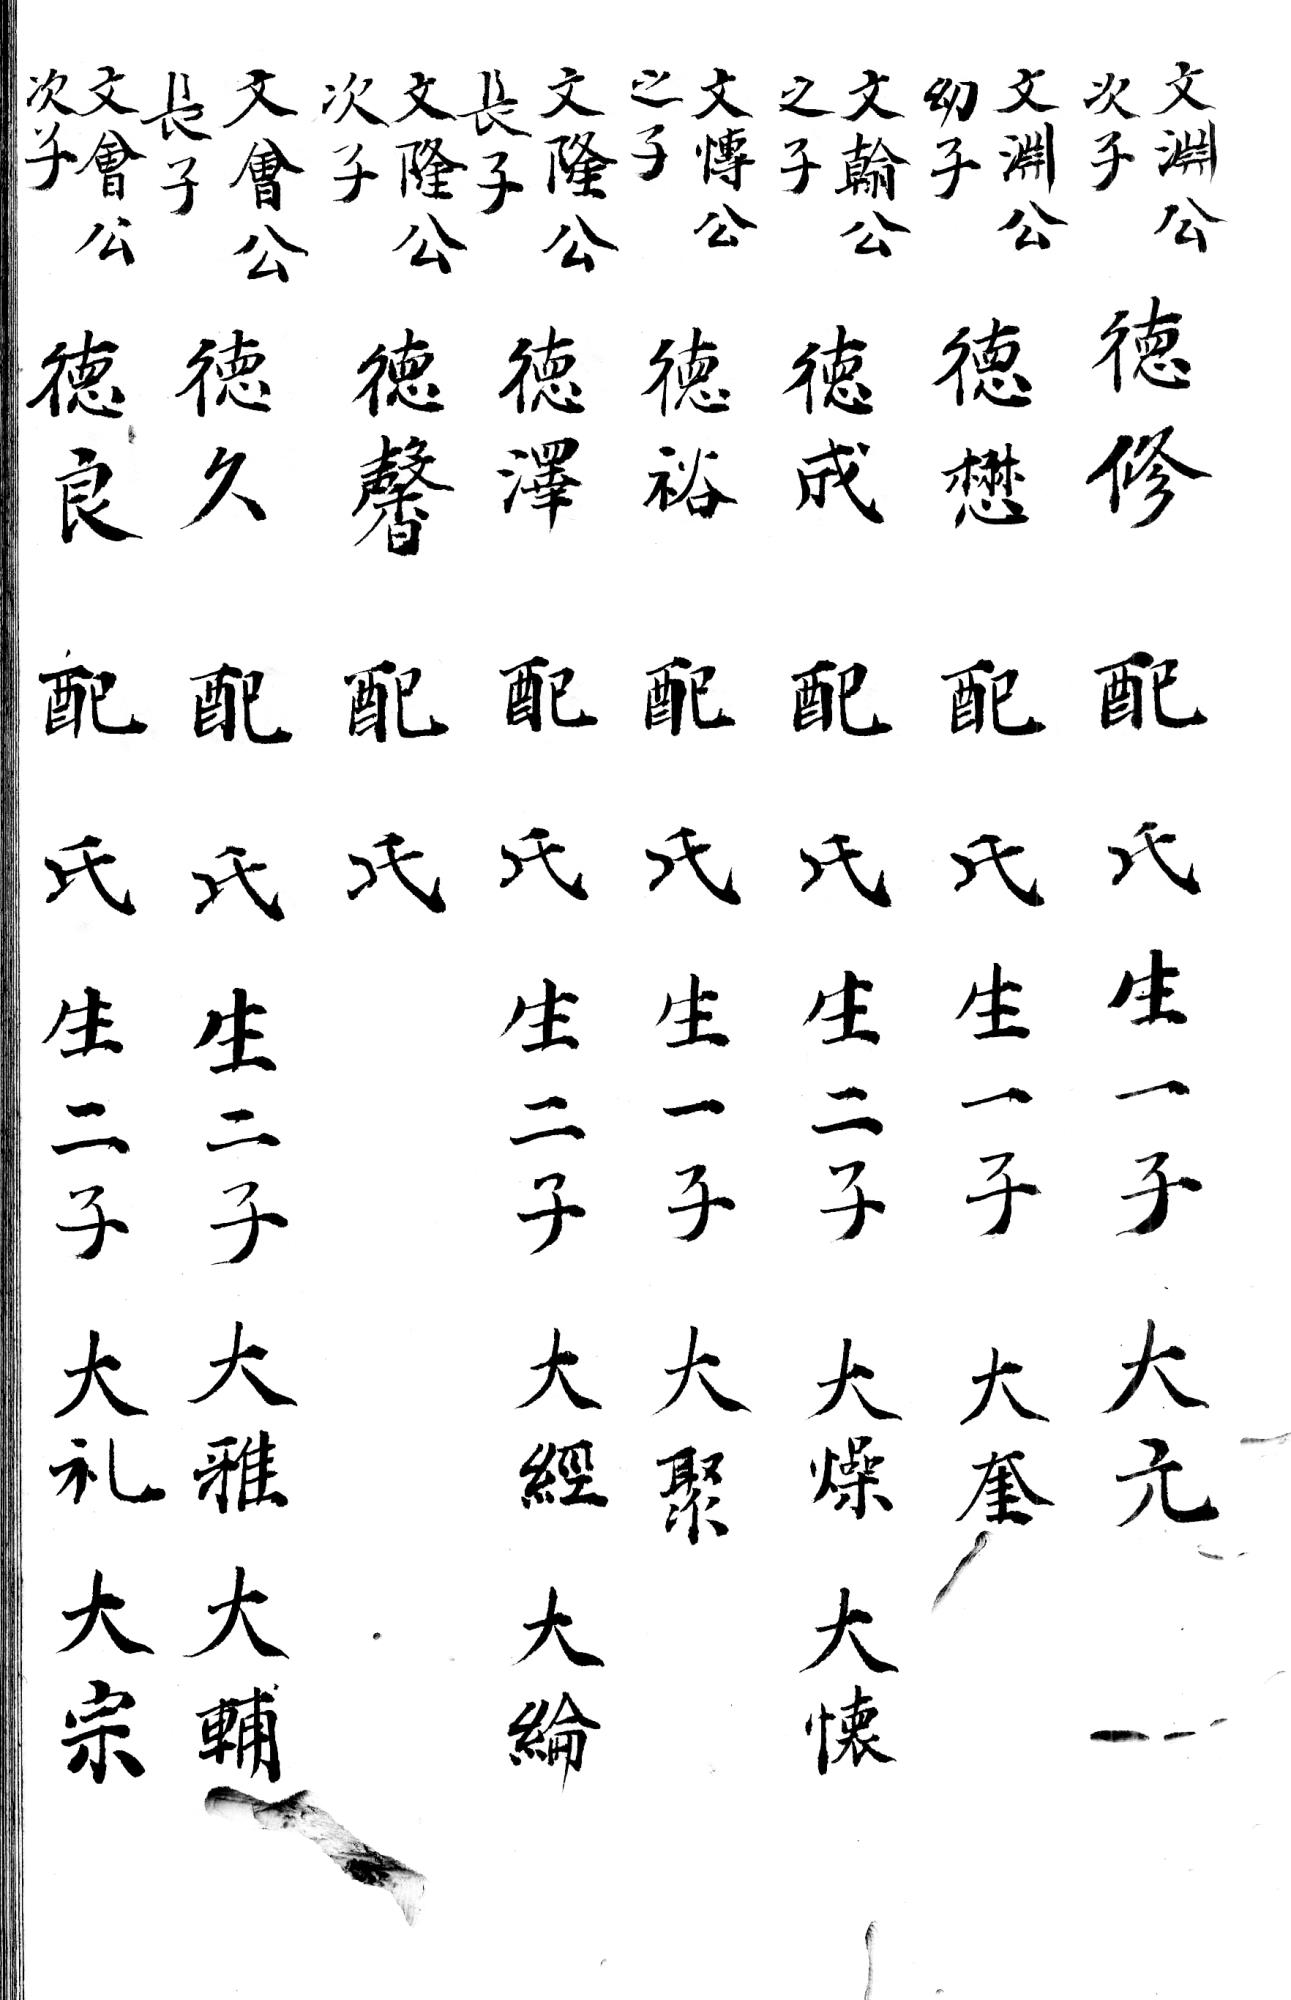 文淵公次子 德修 配 氏 生一子 大元
文淵公幼子 德懋 配 氏 生一子 大奎
文翰公之子 德成 配 氏 生二子 大燥 大懷
文博公之子 德裕 配 氏 生一子 大聚
文隆公長子 德澤 配 氏 生二子 大經 大綸
文隆公次子 德馨 配 氏
文會公長子 德久 配 氏 生二子 大雅 大輔
文會公次子 德良 配 氏 生二子 大礼 大宗